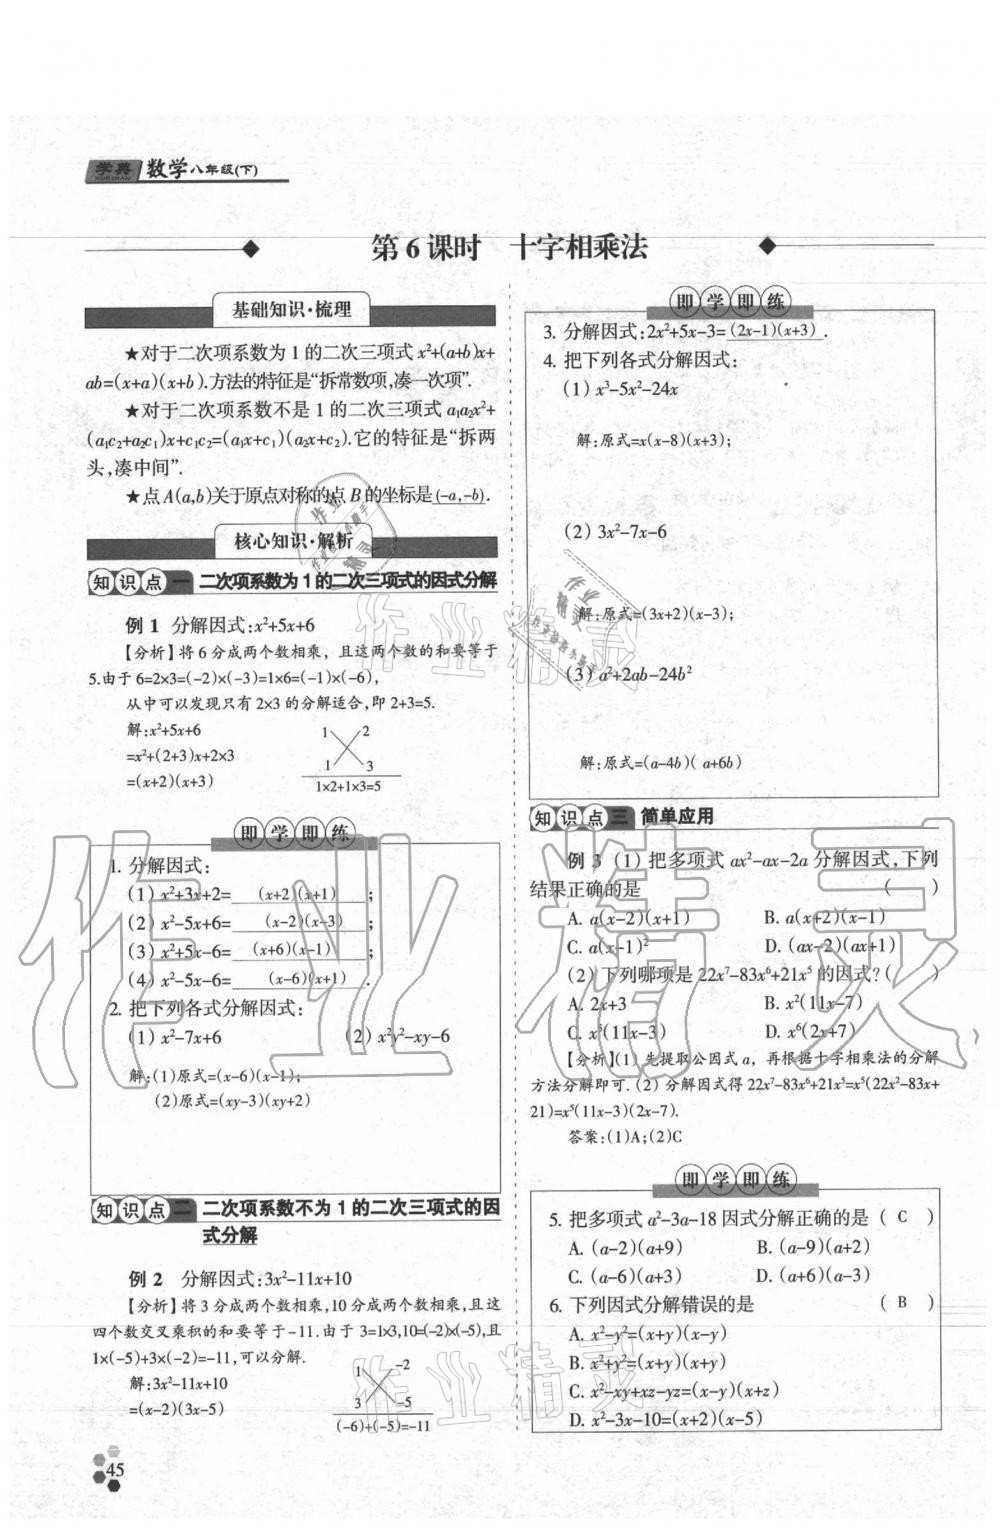 学典 数学八年级(下)
XUEDIAN
第6课时 十字相乘法
基础知识·梳理
★对于二次项系数为1的二次三项式x²+(a+b)x+
ab=(x+a)(x+b).方法的特征是“拆常数项,凑一次项”.
★对于二次项系数不是1的二次三项式a₁a₂x²+
(a₁c₂+a₂c₁)x+c₁c₂=(a₁x+c₁)(a₂x+c₂).它的特征是“拆两
头,凑中间”.
★点A(a,b)关于原点对称的点B的坐标是(-a,-b).
核心知识·解析
知识点一 二次项系数为1的二次三项式的因式分解
例1 分解因式:x²+5x+6
【分析】将6分成两个数相乘,且这两个数的和要等于
5.由于6=2×3=(-2)×(-3)=1×6=(-1)×(-6),
从中可以发现只有2×3的分解适合,即2+3=5.
解:x²+5x+6
=x²+(2+3)x+2×3
=(x+2)(x+3)
1 2
1 3
1×2+1×3=5
即学即练
1. 分解因式:
(1) x²+3x+2= (x+2)(x+1) ;
(2) x²-5x+6= (x-2)(x-3) ;
(3) x²+5x-6= (x+6)(x-1) ;
(4) x²-5x-6= (x-6)(x+1) .
2. 把下列各式分解因式:
(1) x²-7x+6 (2) x²y²-xy-6
解:(1)原式=(x-6)(x-1);
(2)原式=(xy-3)(xy+2)
知识点二 二次项系数不为1的二次三项式的因
式分解
例2 分解因式:3x²-11x+10
【分析】将3分成两个数相乘,10分成两个数相乘,且这
四个数交叉乘积的和要等于-11.由于3=1×3,10=(-2)×(-5),且
1×(-5)+3×(-2)=-11,可以分解.
解:3x²-11x+10
=(x-2)(3x-5)
1 -2
3 -5
(-6)+(-5)=-11
45
即学即练
3. 分解因式:2x²+5x-3= (2x-1)(x+3) .
4. 把下列各式分解因式:
(1) x³-5x²-24x
解:原式=x(x-8)(x+3);
(2) 3x²-7x-6
解:原式=(3x+2)(x-3);
(3) a²+2ab-24b²
解:原式=(a-4b)( a+6b)
知识点三 简单应用
例3 (1) 把多项式ax²-ax-2a分解因式,下列
结果正确的是 ( )
A. a(x-2)(x+1) B. a(x+2)(x-1)
C. a(x-1)² D. (ax-2)(ax+1)
(2) 下列哪项是22x⁷-83x⁶+21x⁵的因式?( )
A. 2x+3 B. x²(11x-7)
C. x⁵(11x-3) D. x⁶(2x+7)
【分析】(1) 先提取公因式a,再根据十字相乘法的分解
方法分解即可.(2) 分解因式得22x⁷-83x⁶+21x⁵=x⁵(22x²-83x+
21)=x⁵(11x-3)(2x-7).
答案:(1)A;(2)C
即学即练
5. 把多项式a²-3a-18因式分解正确的是 ( C )
A. (a-2)(a+9) B. (a-9)(a+2)
C. (a-6)(a+3) D. (a+6)(a-3)
6. 下列因式分解错误的是 ( B )
A. x²-y²=(x+y)(x-y)
B. x²+y²=(x+y)(x+y)
C. x²-xy+xz-yz=(x-y)(x+z)
D. x²-3x-10=(x+2)(x-5)
作业精灵
作业精灵
作业精灵